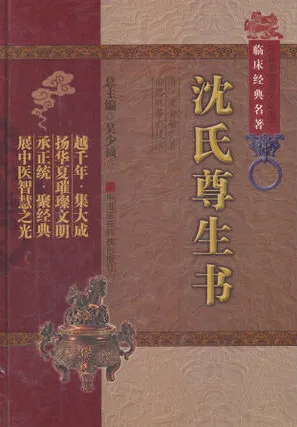 临床经典名著
沈氏尊生书
总主编◎吴少祯
越千年·集大成
扬华夏璀璨文明
承正统·聚经典
展中医智慧之光
中国医药科技出版社